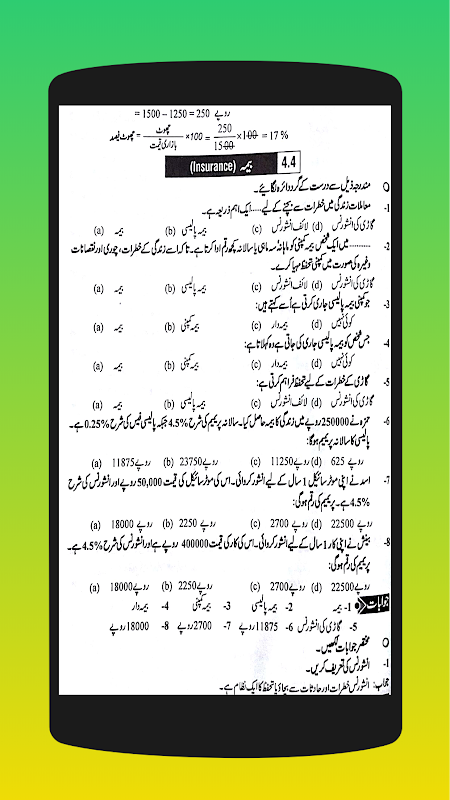 = 1500 – 1250 = 250 روپے
چھوٹ فیصد = چھوٹ / بازاری قیمت ×100 = 250 / 1500 ×100 = 17 %
4.4 بیمہ (Insurance)
O مندرجہ ذیل سے درست کے گرد دائرہ لگائیے۔
1- معاملات زندگی میں خطرات سے بچنے کے لیے.....ایک اہم ذریعہ ہے۔
(a) بیمہ (b) بیمہ پالیسی (c) لائف انشورنس (d) گاڑی کی انشورنس
2- .......... میں ایک شخص بیمہ کمپنی کو ماہانہ، سہ ماہی یا سالانہ کچھ رقم ادا کرتا ہے۔ تاکہ اسے زندگی کے خطرات، چوری اور نقصانات
وغیرہ کی صورت میں کمپنی تحفظ مہیا کرے۔
(a) بیمہ (b) بیمہ پالیسی (c) لائف انشورنس (d) گاڑی کی انشورنس
3- جو کمپنی بیمہ پالیسی جاری کرتی ہے اُسے کہتے ہیں:
(a) بیمہ (b) بیمہ کمپنی (c) بیمہ دار (d) کوئی نہیں
4- جس شخص کو بیمہ پالیسی جاری کی جاتی ہے وہ کہلاتا ہے:
(a) بیمہ (b) بیمہ کمپنی (c) بیمہ دار (d) کوئی نہیں
5- گاڑی کے خطرات کے لیے تحفظ فراہم کرتی ہے:
(a) بیمہ (b) بیمہ پالیسی (c) لائف انشورنس (d) گاڑی کی انشورنس
6- حمزہ نے 250000 روپے میں زندگی کا بیمہ حاصل کیا۔ سالانہ پریمیم کی شرح 4.5% جبکہ پالیسی فیس کی شرح 0.25% ہے۔
پالیسی کا سالانہ پریمیم ہوگا:
(a) 11875 روپے (b) 23750 روپے (c) 11250 روپے (d) 625 روپے
7- اسد نے اپنی موٹر سائیکل 1 سال کے لیے انشور کروائی۔ اس کی موٹر سائیکل کی قیمت 50,000 روپے اور انشورنس کی شرح
4.5% ہے۔ پریمیم کی رقم ہوگی:
(a) 18000 روپے (b) 2250 روپے (c) 2700 روپے (d) 22500 روپے
8- بینش نے اپنی کار 1 سال کے لیے انشور کروائی۔ اس کی کار کی قیمت 400000 روپے ہے اور انشورنس کی شرح 4.5% ہے۔
پریمیم کی رقم ہوگی:
(a) 18000 روپے (b) 2250 روپے (c) 2700 روپے (d) 22500 روپے
جوابات 1- بیمہ 2- بیمہ پالیسی 3- بیمہ کمپنی 4- بیمہ دار
5- گاڑی کی انشورنس 6- 11875 روپے 7- 2700 روپے 8- 18000 روپے
O مختصر جوابات لکھیں۔
1- انشورنس کی تعریف کریں۔
جواب: انشورنس خطرات اور حادثات سے بچاؤ یا تحفظ کا ایک نظام ہے۔